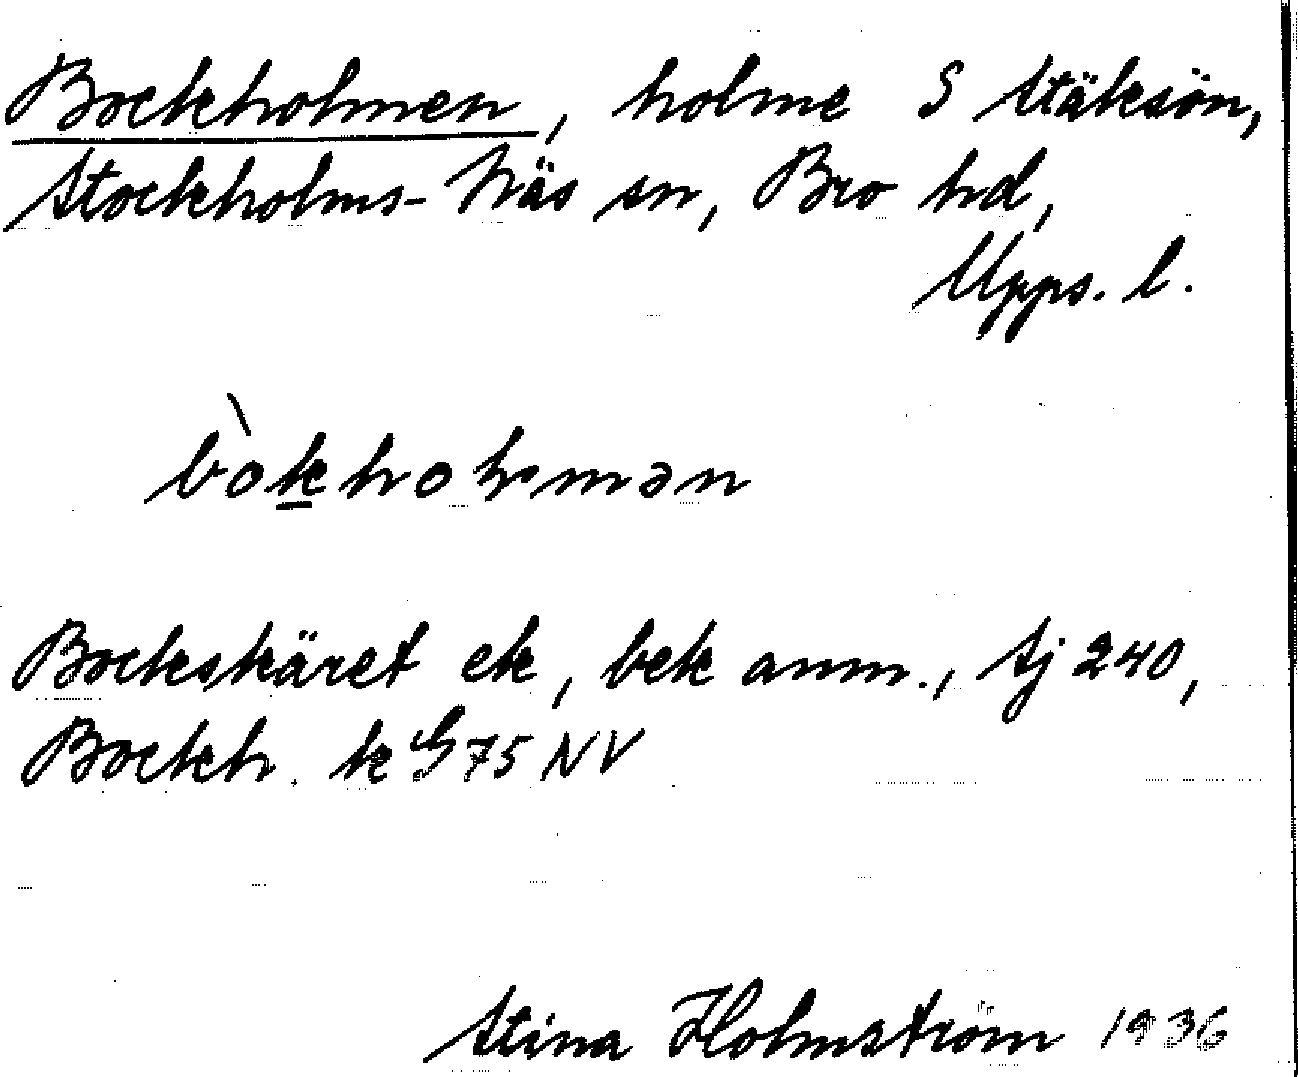 Bockholmen, holme S Stäksön,
Stockholms-Näs sn, Bro hd,
Upps. l.
bòkhoḷmən
Bockskäret ek, bek anm., Sj 240,
Bockh. k G 75 NV
Stina Holmström 1936